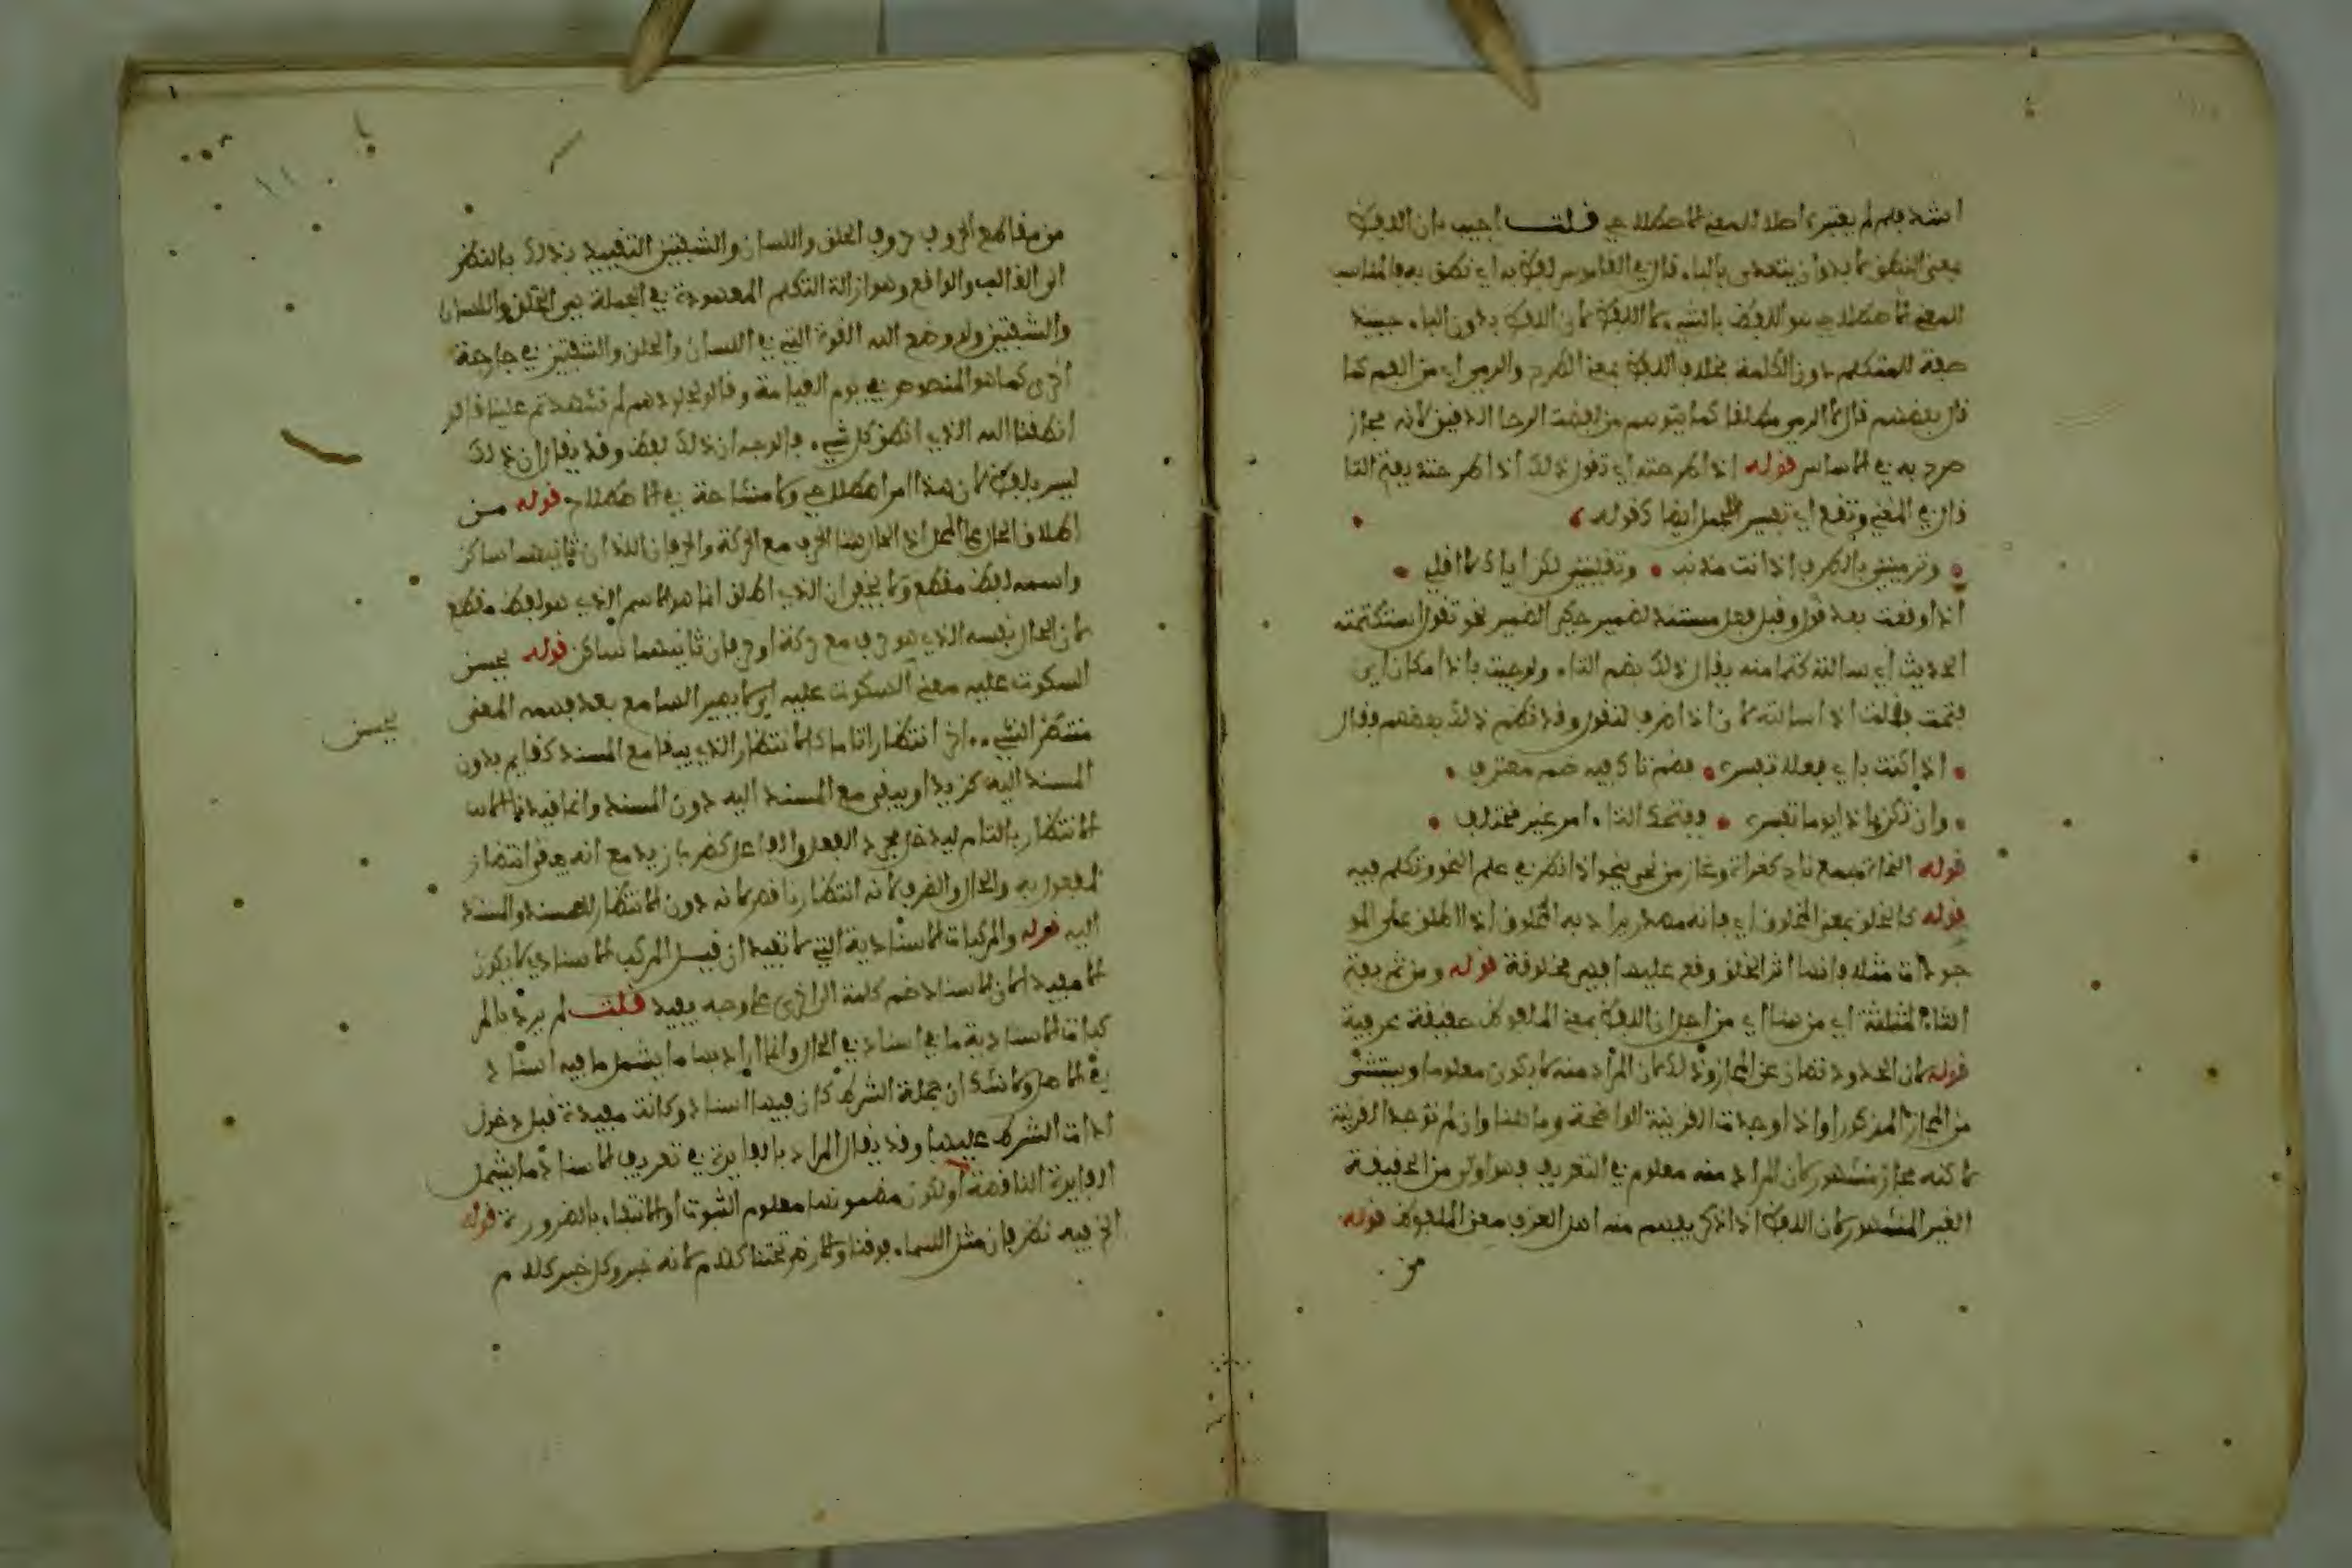 معنى النطق لا بد وان يتعدى بالباء قال في القاموس لفظ به اي نطق به فالمناسب
للمعنى الاصطلاحي هو اللفظ بالشيء لا اللفظ لان اللفظ بدون الباء حينئذ
صفة للمتكلم دون الكلمة بخلاف اللفظ بمعنى الطرح والرمي اي من الفم كما
قال بعضهم قال لا الرمي مطلقا كما يتوهم من لفظت الرحا الدقيق لانه مجاز
صرح به في الاساس قوله اذا طرحته اي تقول ذلك اذا طرحته بفتح التا
قال في المغني وتقع اي تفسير الجمل ايضا كقوله
وترمينني بالطرف اي انت مذنب وتقلينني لكن اياك لا اقلي
اذا وقعت بعد تقول وقبل فعل مسند لضمير حكي الضمير نحو تقول استكتمته
الحديث اي سالته كتمانه يقال ذلك بضم التاء ولو جيت باذا مكان اي
فتحت فقلت اذا سالته لان اذا ظرف لتقول وقد نظم ذلك بعضهم فقال
اذا كنيت باي فعلا تفسره فضم تاءك فيه ضم معترف
وان تكن باذا يوما تفسره ففتحك التاء امر غير مختلف
قوله النحاة جمع ناح كغزاة وغاز من نحى ينحو اذا نظر في علم النحو وتكلم فيه
قوله كالخلق بمعنى المخلوق اي فانه مصدر يراد به المخلوق اذا اطلق على المو
جودات مثلا فانها اثر الخلق وقع عليها فهي مخلوقة قوله ومن ثم بفتح
الثاء المثلثة اي من هنا اي من اجل ان اللفظ بمعنى الملفوظ حقيقة عرفية
قوله لان الحدود تصان عن المجاز وذلك لان المراد منه لا يكون معلوما ويستثنى
من المجاز المذكور او اذا وجدت القرينة الواضحة وما هنا وان لم توجد القرينة
لاكنه مجاز مشهور كان المراد منه معلوم في التعريف وهو اولى من الحقيقة
الغير المشهور كان اللفظ اذا ذكر يفهم منه اهل العرف معنى الملفوظ قوله
من
من مقاطع الحروف حروف الحلق واللسان والشفتين التقييد بذلك بالنظر
الى الغالب والواقع وهو ازالة التكلم المعهودة في الجملة هي الحلق واللسان
والشفتين ولو وضع الله القوة التي في اللسان والحلق والشفتين في جارحة
اخرى كما هو المنصوص في يوم القيامة وقالوا لجلودهم لم شهدتم علينا قالوا
انطقنا الله الذي انطق كل شيء فالوجه ان ذلك لفظ وقد يقال ان ذلك
ليس بلفظ لان هذا امر اصطلاحي ولا مشاحة في الاصطلاح قوله من
اطلاق الحال على المحل اذ الحال هنا الحرف مع الحركة والحرفان اللذان ثانيهما ساكن
واسمه لفظ مقطع ولا يخفى ان الذي اطلق انما هو الاسم الذي هو لفظ مقطع
لان الحال نفسه الذي هو حرف مع حركة او حرفان ثانيهما ساكن قوله يحسن
السكوت عليه معنى السكوت عليه ان لا يصير السامع بعد فهمه المعنى
منتظرا لشيء اخر انتظارا تاما كالانتظار الذي يبقا مع المسند كقايم بدون
المسند اليه كزيد او يبقى مع المسند اليه دون المسند وانما قيدنا
الانتظار بالتام ليدخل مجرد الفعل والفاعل كضرب زيد مع انه بقي انتظار
المفعول به والحال والظرف لانه انتظار ناقص لانه دون الانتظار للمسند والمسند
اليه قوله والمركبات الاسنادية التي لا تفيد ان قيل المركب الاسنادي لا يكون
الا مفيدا لان الاسناد ضم كلمة الى اخرى على وجه يفيد قلت لم يرد بالمر
كبات الاسنادية ما في اسناد في الحال وانما اراد بها ما يشمل ما فيه اسناد
في الاصل ولا شك ان جملة الشرط كان فيها اسناد وكانت مفيدة قبل دخول
اداة الشرط عليها وقد يقال المراد بالفايدة في تعريف الاسناد ما يشمل
الفايدة الناقصة او لكون مضمونها معلوم الثبوت او الانتفاء بالضرورة قوله
الخ فيه نظر فان مثل السماء فوقنا والارض تحتنا كلام لانه خبر وكل خبر كلام
يحسن